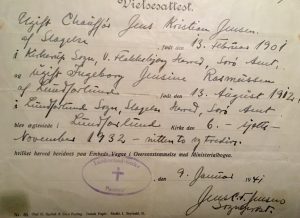 Vielsesattest.
Ugift Chauffør Jens Kristian Jensen
af Slagelse født den 13. Februar 1901
i Kirkerup Sogn, V. Flakkebjerg Herred, Sorø Amt,
og Ugift Ingeborg Jensine Rasmussen
af Lundforlund født den 13. August 1912
i Lundforlund Sogn, Slagelse Herred, Sorø Amt
blev ægteviede i Lundforlund Kirke den 6. - sjette -
November 1932 - nitten to og tredive.
hvilket herved bevidnes paa Embeds Vegne i Overensstemmelse med Ministerialbogen.
den 9. Januar 1941
Sognepræst